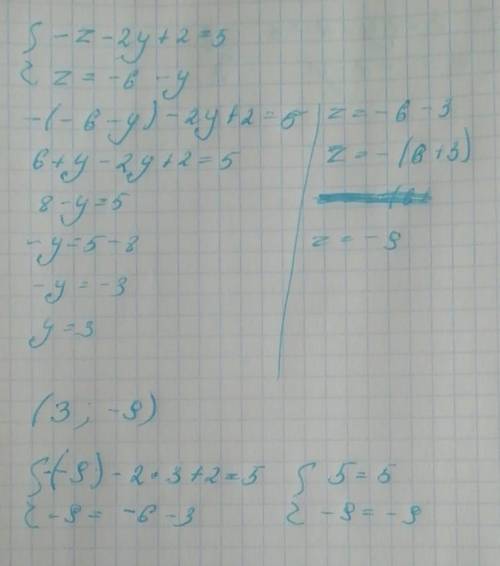 { -z - 2y + 2 = 5
{ z = -6 - y
-(-6 - y) - 2y + 2 = 5
6 + y - 2y + 2 = 5
8 - y = 5
-y = 5 - 8
-y = -3
y = 3
z = -6 - 3
z = -(6 + 3)
z = -9
(3 ; -9)
{ -(-9) - 2 · 3 + 2 = 5
{ -9 = -6 - 3
{ 5 = 5
{ -9 = -9